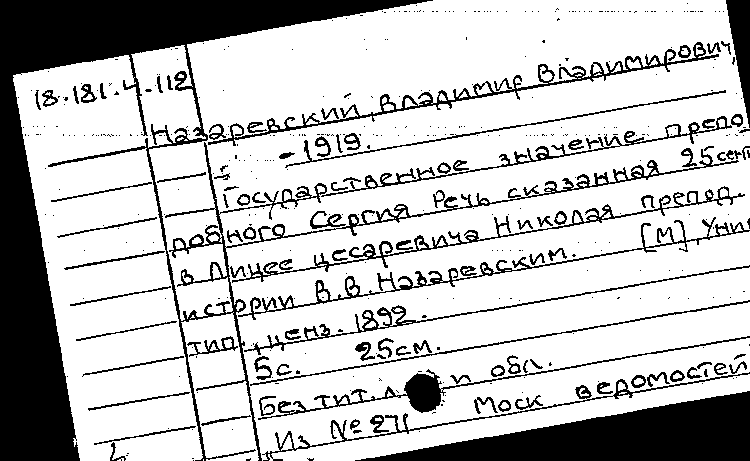 18.181.4.112
Назаревский, Владимир Владимирович,
-1919.
Государственное значение препо
добного Сергия Речь сказанная 25 сент
в Лицее цесаревича Николая препод.
истории В.В. Назаревским. [М], Уни
тип., ценз. 1892.
5с. 25см.
Без тит. л и обл.
Из № 271 Моск ведомостей